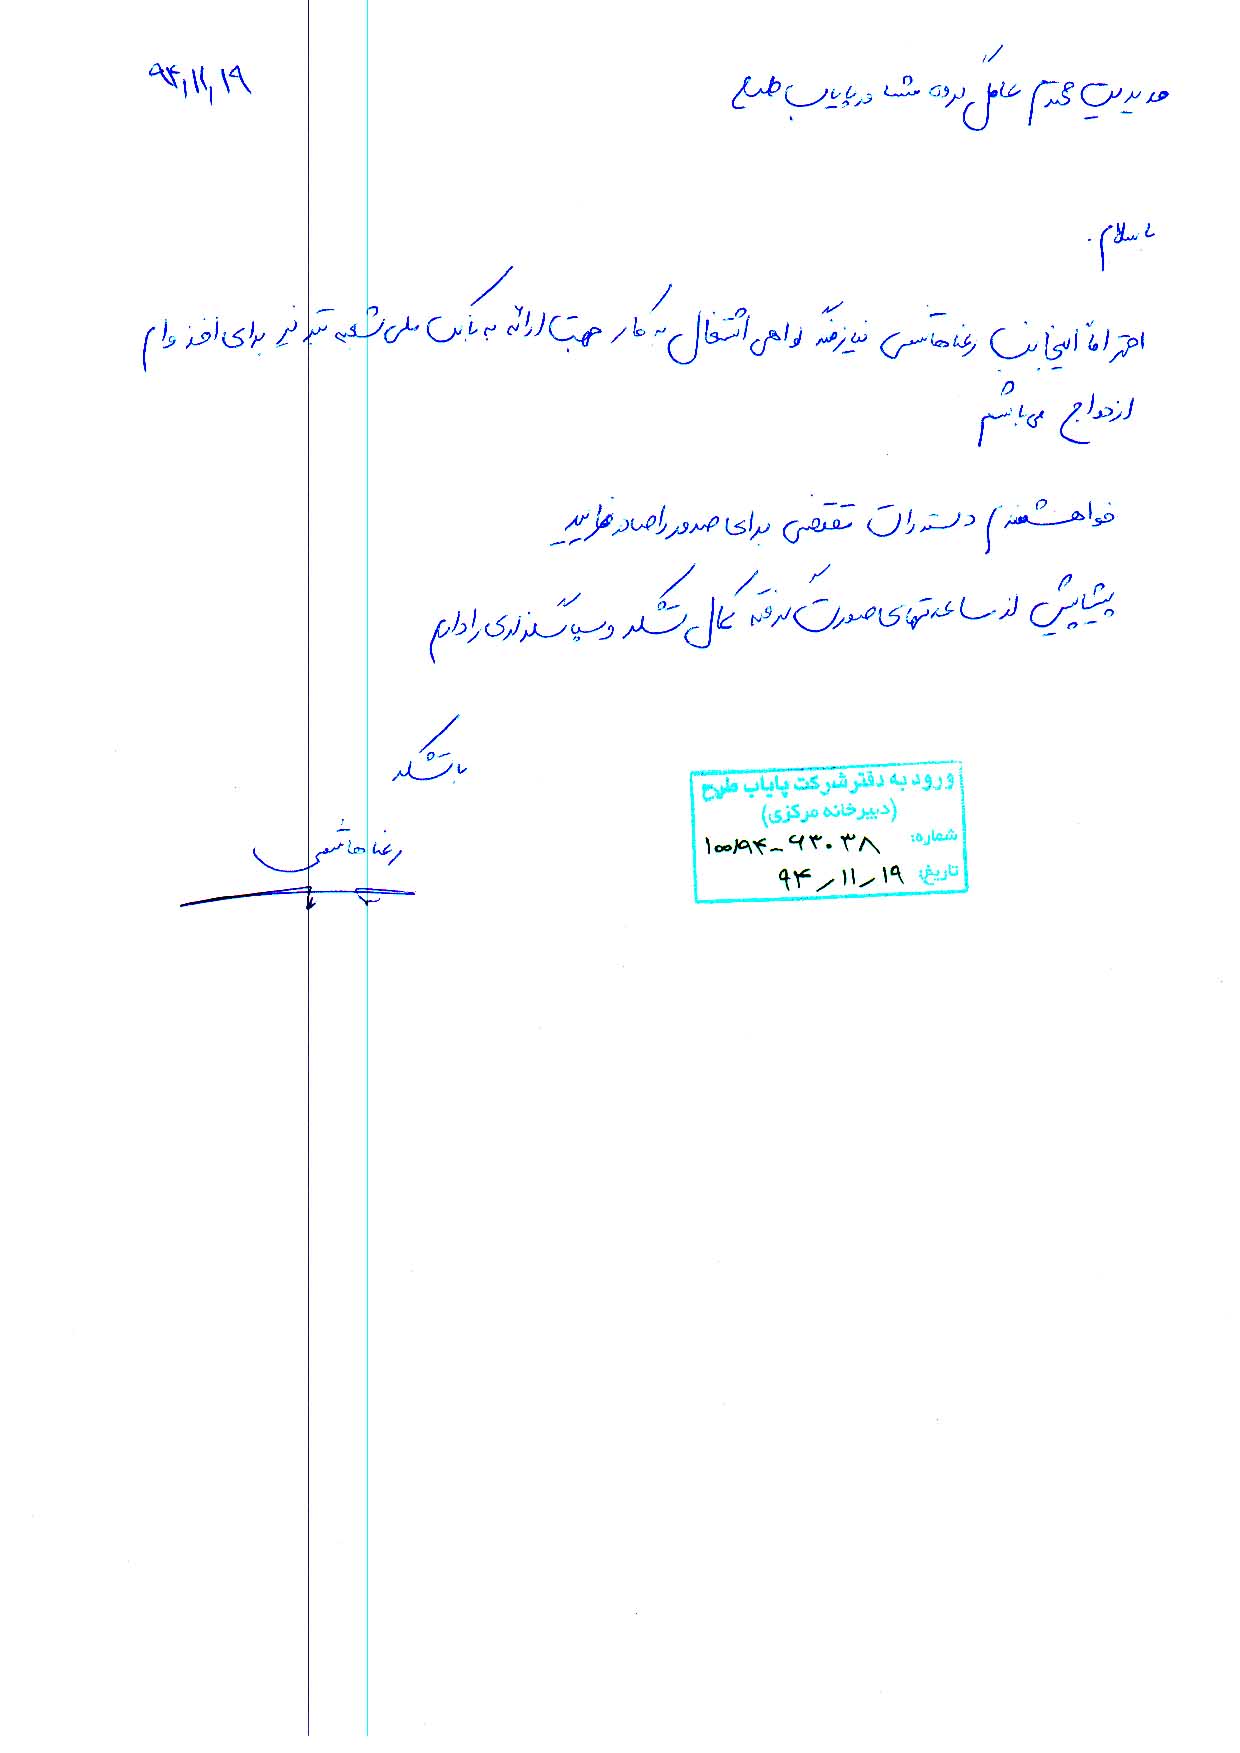 ۹۴/۱۱/۱۹
مدیریت محترم عامل گروه مشاور پایاب طرح
با سلام.
احتراماً اینجانب رعنا هاشمی نیازمند گواهی اشتغال به کار جهت ارائه به بانک ملی شعبه برای اخذ وام
ازدواج می باشم
خواهشمندم دستورات مقتضی برای صدور را صادر فرمایید
پیشاپیش از مساعدتهای صورت گرفته کمال تشکر و سپاسگذاری را دارم
با تشکر
رعنا هاشمی
ورود به دفتر شرکت پایاب طرح
(دبیرخانه مرکزی)
شماره: ۱۰۰/۹۴-۶۳۰۳۸
تاریخ: ۹۴/۱۱/۱۹